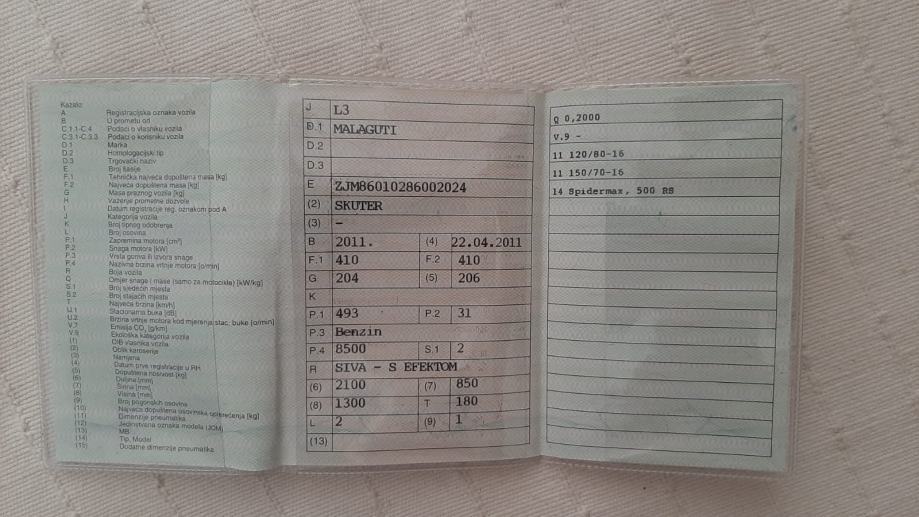 Kazalo:
A Registracijska oznaka vozila
B U prometu od
C.1.1-C.4 Podaci o vlasniku vozila
C.3.1-C.3.3 Podaci o korisniku vozila
D.1 Marka
D.2 Homologacijski tip
D.3 Trgovački naziv
E Broj šasije
F.1 Tehnička najveća dopuštena masa [kg]
F.2 Najveća dopuštena masa [kg]
G Masa praznog vozila [kg]
H Važenje prometne dozvole
I Datum registracije reg. oznakom pod A
J Kategorija vozila
K Broj tipnog odobrenja
L Broj osovina
P.1 Zapremina motora [cm³]
P.2 Snaga motora [kW]
P.3 Vrsta goriva ili izvora snage
P.4 Nazivna brzina vrtnje motora [o/min]
R Boja vozila
Q Omjer snage i mase (samo za motocikle) [kW/kg]
S.1 Broj sjedećih mjesta
S.2 Broj stajaćih mjesta
T Najveća brzina [km/h]
U.1 Stacionarna buka [dB]
U.2 Brzina vrtnje motora kod mjerenja stac. buke [o/min]
V.7 Emisija CO₂ [g/km]
V.9 Ekološka kategorija vozila
(1) OIB vlasnika vozila
(2) Oblik karoserije
(3) Namjena
(4) Datum prve registracije u RH
(5) Dopuštena nosivost [kg]
(6) Duljina [mm]
(7) Širina [mm]
(8) Visina [mm]
(9) Broj pogonskih osovina
(10) Najveća dopuštena osovinska opterećenja [kg]
(11) Dimenzije pneumatika
(12) Jedinstvena oznaka modela (JOM)
(13) MB
(14) Tip, Model
(15) Dodatne dimenzije pneumatika
J L3
D.1 MALAGUTI
D.2
D.3
E ZJM86010286002024
(2) SKUTER
(3) -
B 2011. (4) 22.04.2011
F.1 410 F.2 410
G 204 (5) 206
K
P.1 493 P.2 31
P.3 Benzin
P.4 8500 S.1 2
R SIVA - S EFEKTOM
(6) 2100 (7) 850
(8) 1300 T 180
L 2 (9) 1
(13)
Q 0,2000
V.9 -
11 120/80-16
11 150/70-16
14 Spidermax, 500 RS